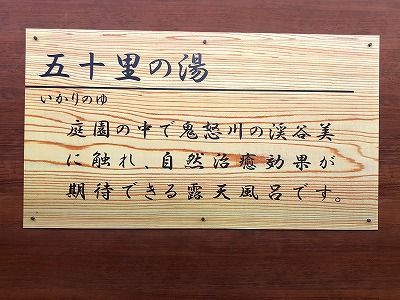 五十里の湯
いかりのゆ
庭園の中で鬼怒川の渓谷美
に触れ、自然治癒効果が
期待できる露天風呂です。